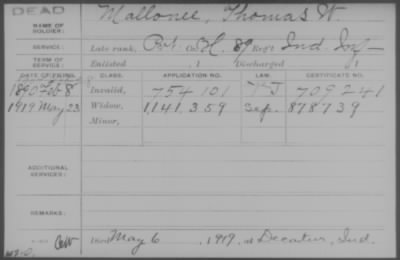 DEAD
NAME OF SOLDIER: Mallonee, Thomas W.
SERVICE: Late rank, Pvt. Co. H, 89 Reg't Ind. Inf
TERM OF SERVICE: Enlisted , 1 Discharged , 1
DATE OF FILING. CLASS. APPLICATION NO. LAW. CERTIFICATE NO.
1890 Feb 8 Invalid, 754101 709241
1919 May 23 Widow, 1,141,359 Sep. 878739
Minor,
ADDITIONAL SERVICES:
REMARKS:
Died May 6, 1919, at Decatur, Ind.